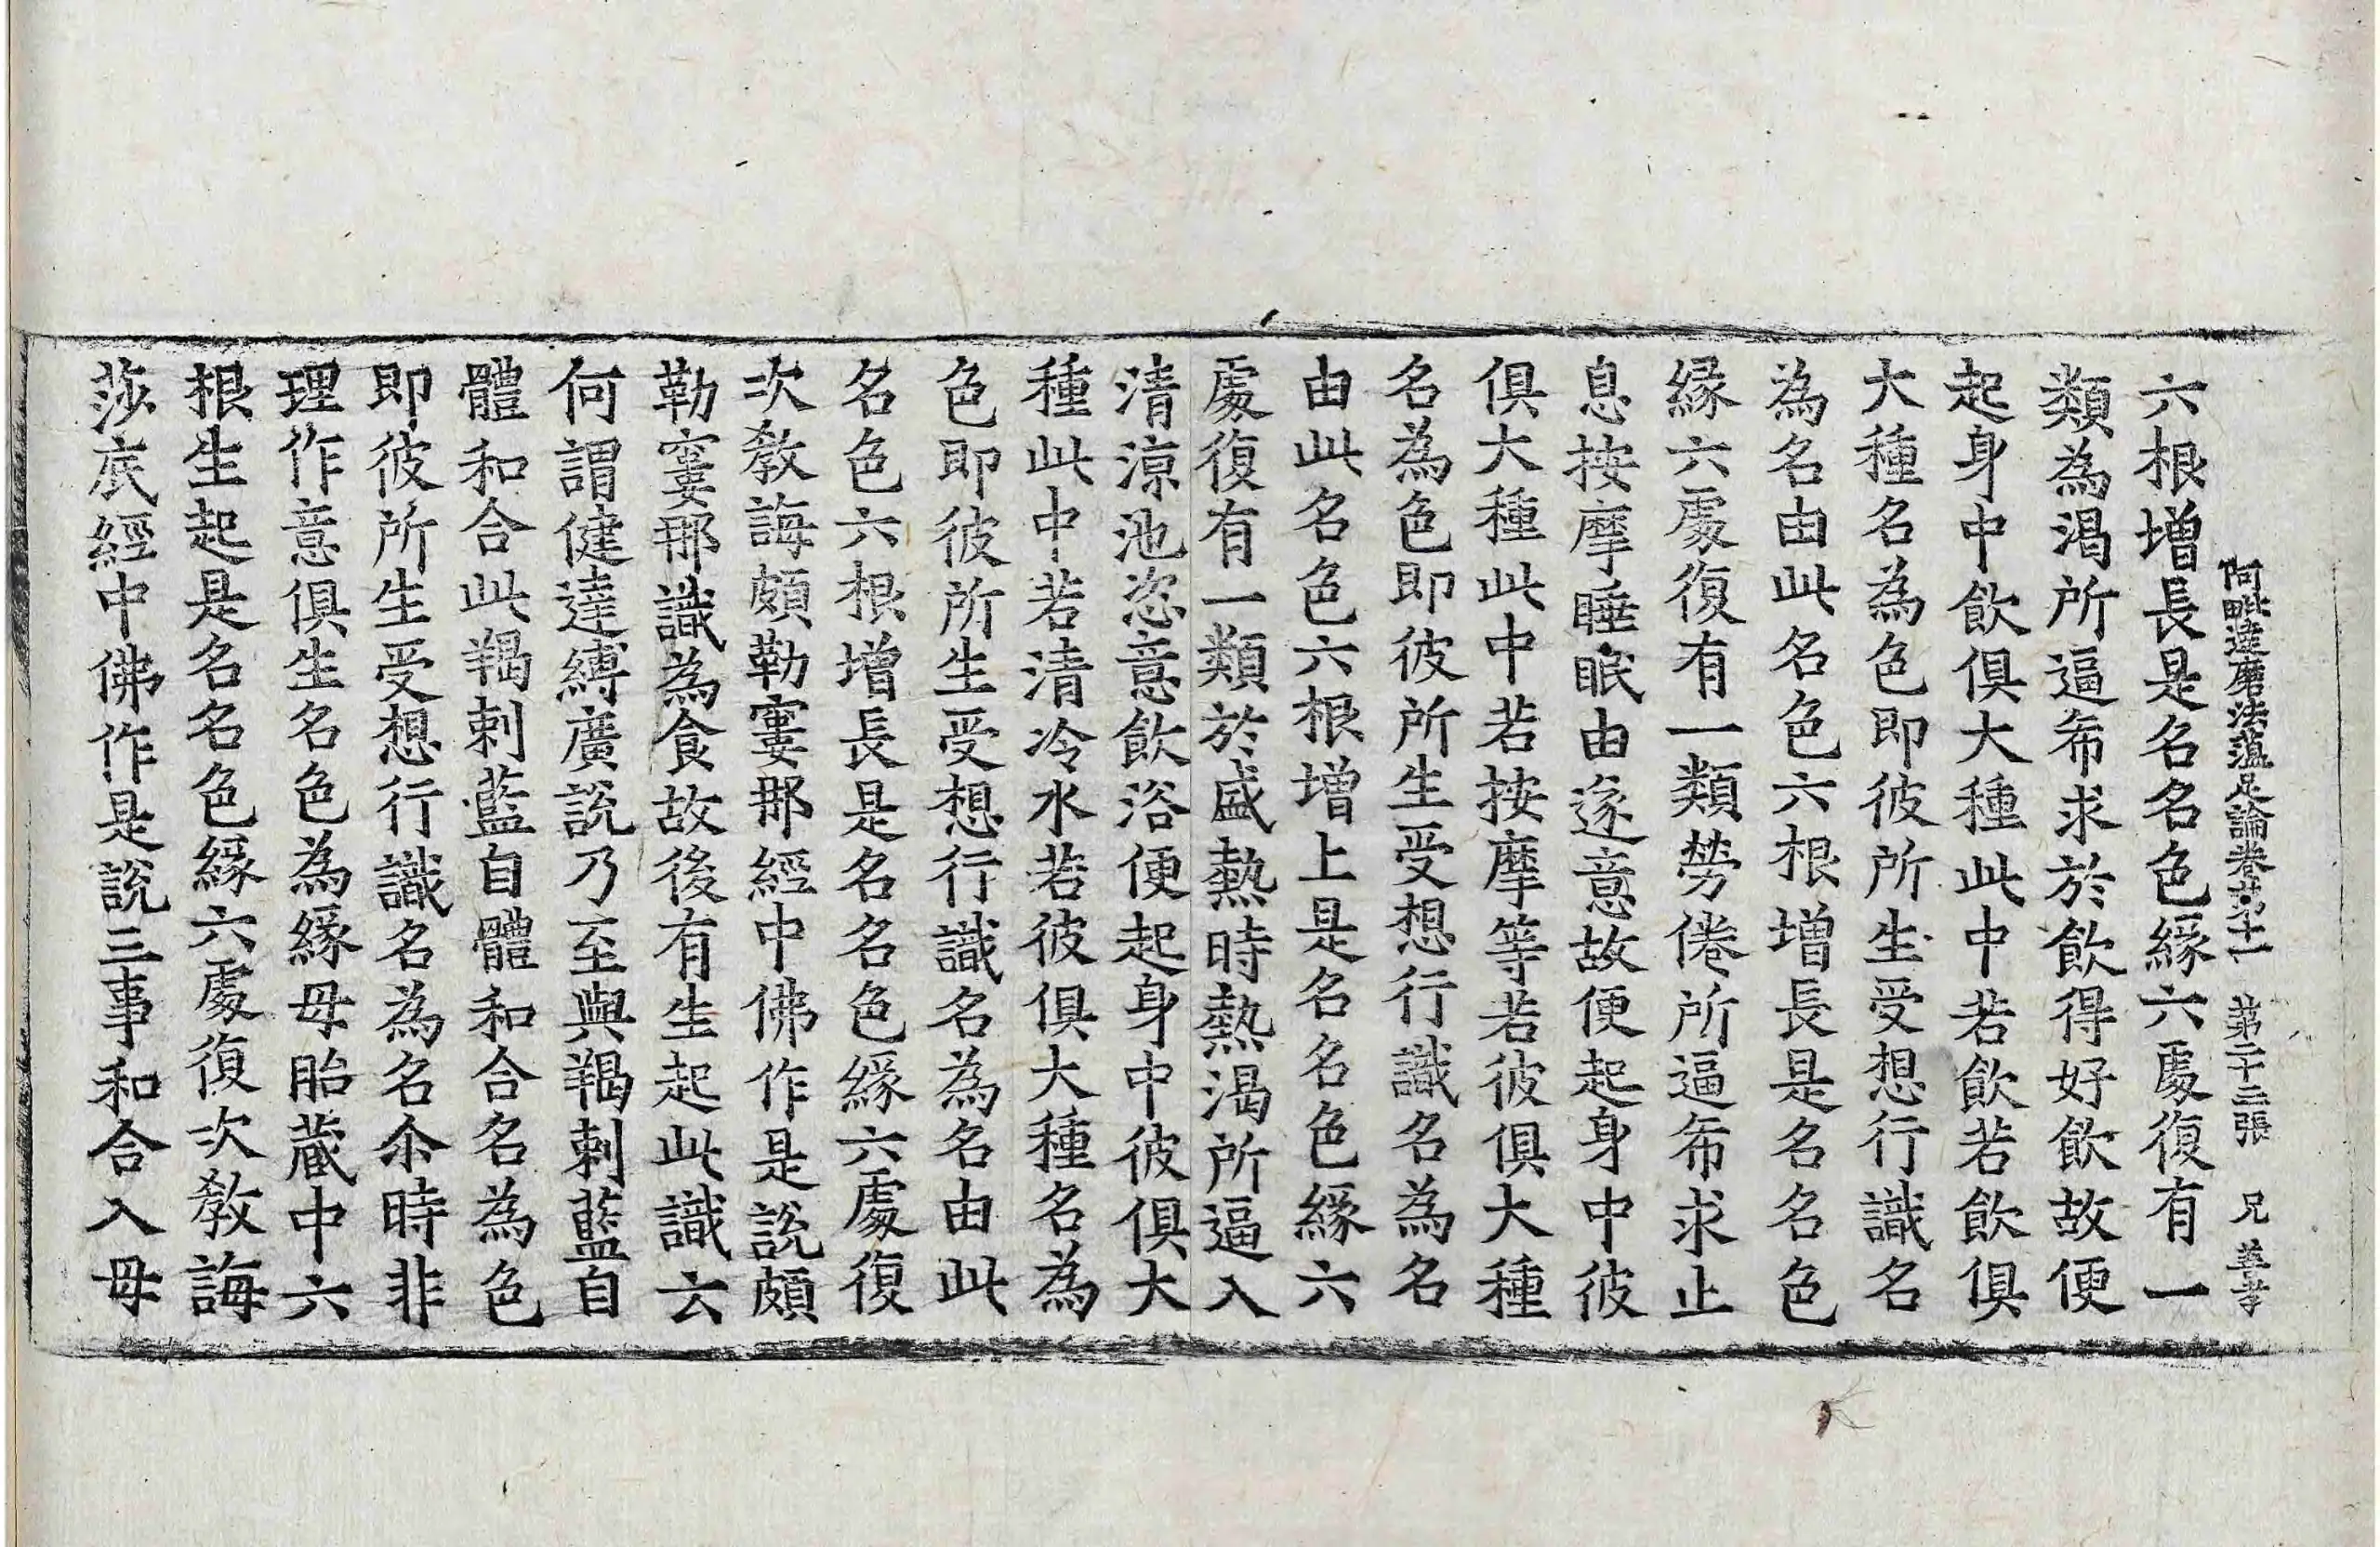 阿毗達磨法蘊足論卷第十一 第二十三張 兄
六根增長是名名色緣六處復有一
類為渴所逼希求於飲得好飲故便
起身中飲俱大種此中若飲若飲俱
大種名為色即彼所生受想行識名
為名由此名色六根增長是名名色
緣六處復有一類勞倦所逼希求止
息按摩睡眠由遂意故便起身中彼
俱大種此中若按摩等若彼俱大種
名為色即彼所生受想行識名為名
由此名色六根增上是名名色緣六
處復有一類於盛熱時熱渴所逼入
清涼池恣意飲浴便起身中彼俱大
種此中若清冷水若彼俱大種名為
色即彼所生受想行識名為名由此
名色六根增長是名名色緣六處復
次教誨頗勒窶那經中佛作是說頗
勒窶那識為食故後有生起此識云
何謂健達縛廣說乃至與羯剌藍自
體和合此羯剌藍自體和合名為色
即彼所生受想行識名為名尒時非
理作意俱生名色為緣母胎藏中六
根生起是名名色緣六處復次教誨
莎底經中佛作是說三事和合入母